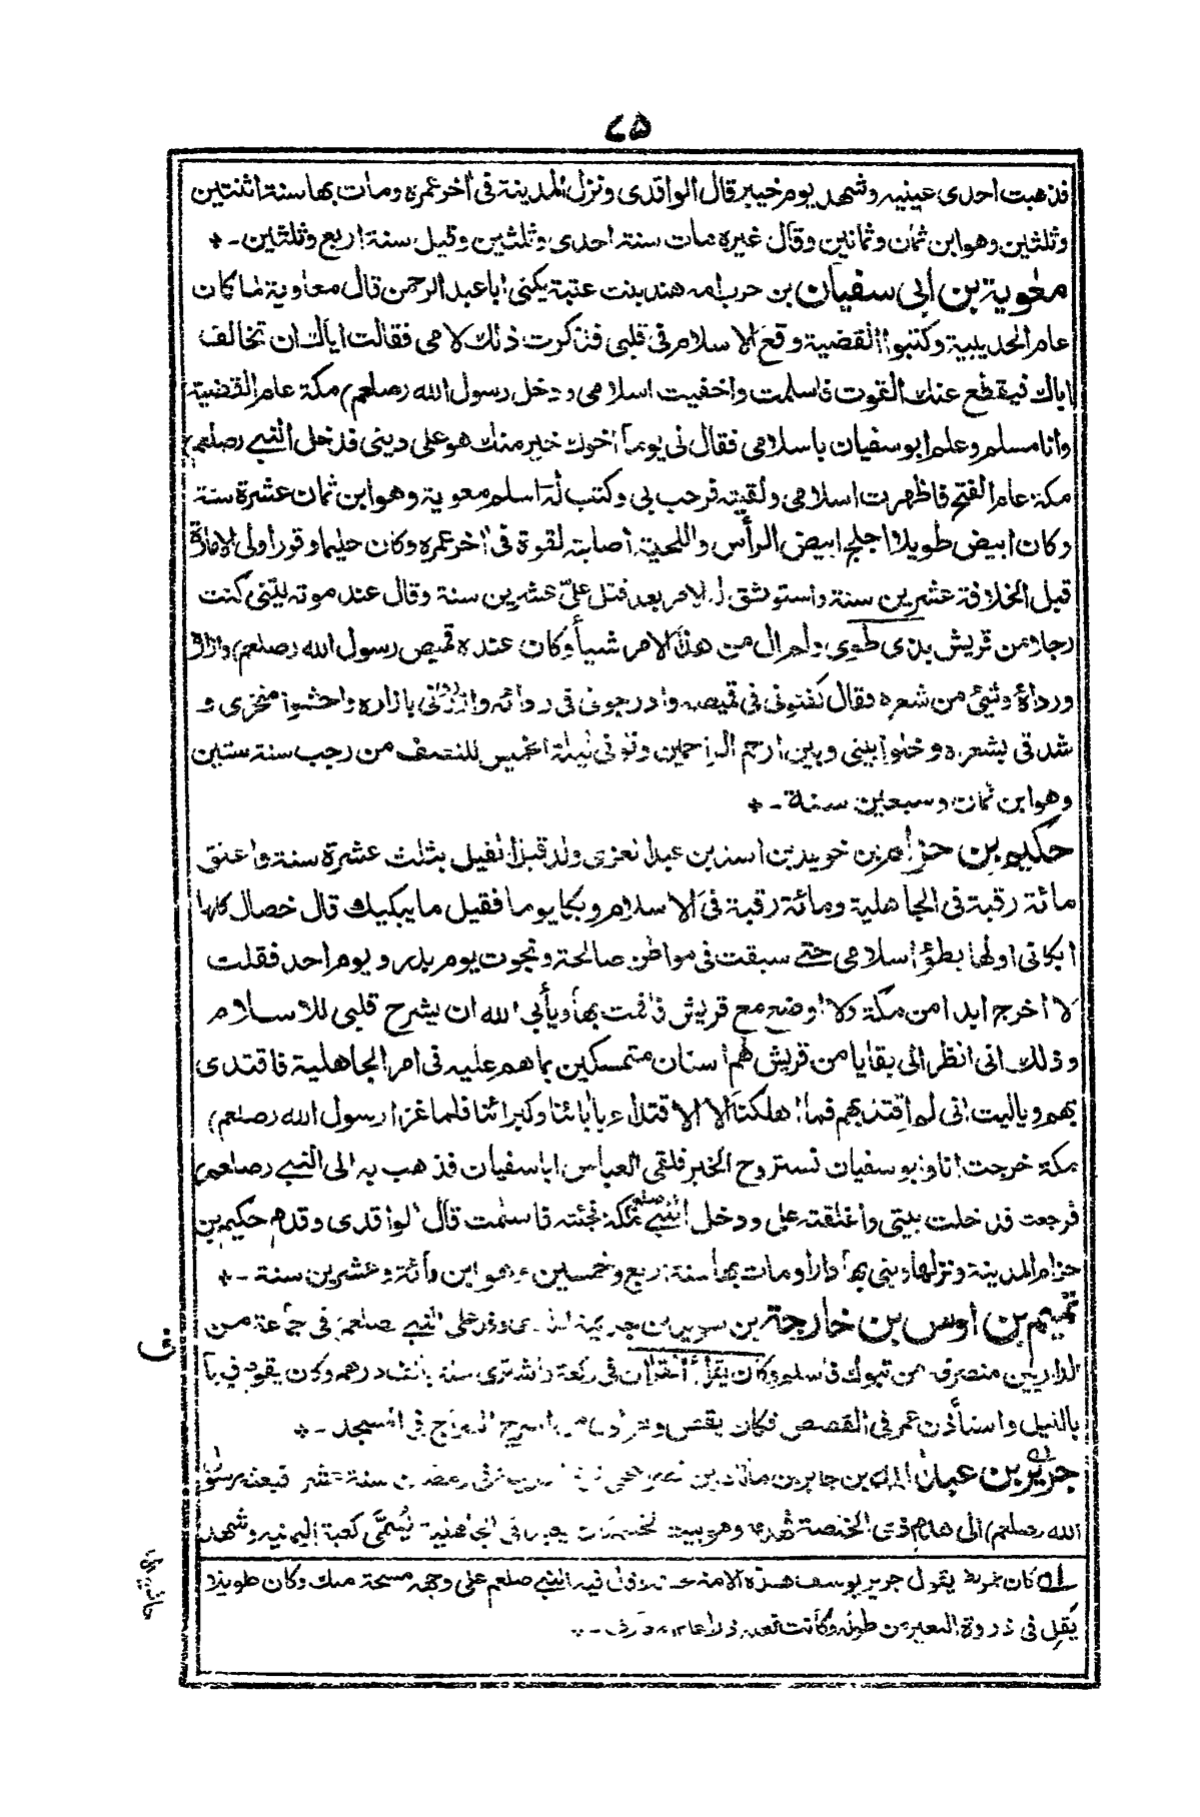 ٨٥
فذهبت احدى عينيه وشهد يوم خيبر قال الواقدى ونزل المدينة فى اٰخر عمره ومات بها سنة اثنتين
وثلثين وهو ابن ثمان وثمانين وقال غيره مات سنة احدى وثلثين وقيل سنة اربع وثلثين ـ ٭
معٰوية بن ابى سفيان بن حرب امه هند بنت عتبة يكنى ابا عبد الرحمن قال معاوية لما كان
عام الحديبية وكتبوا القضية وقع الاسلام فى قلبى فذكرت ذلك لامى فقالت اياك ان تخالف
اباك فيقطع عنك القوت فاسلمت واخفيت اسلامى ودخل رسول الله (صلعم) مكة عام القضية
وانا مسلم وعلم ابو سفيان باسلامى فقال لى يوما اخوك خير منك هو على دينى فدخل النبى (صلعم)
مكة عام الفتح فاظهرت اسلامى ولقيته فرحب بى وكتب له اسلم معوية وهو ابن ثمان عشرة سنة
وكان ابيض طويلا اجلح ابيض الرأس واللحية اصابته لقوة فى اٰخر عمره وكان حليما وقورا ولى الامارة
قبل الخلافة عشرين سنة واستوثق له الامر بعد قتل علىّ عشرين سنة وقال عند موته ليتنى كنت
رجلا من قريش بذى طوى ولم ال من هذا الامر شيأ وكان عنده قميص رسول الله (صلعم) وازاره
ورداؤه وشئ من شعره فقال كفنونى فى قميصه وادرجونى فى ردائه وازرونى بازاره واحشوا منخرى و
شدقى بشعره وخلوا بينى وبين ارحم الراحمين وتوفى ليلة الخميس للنصف من رجب سنة ستين
وهو ابن ثمان وسبعين سنة ـ ٭
حكيم بن حزام بن خويلد بن اسد بن عبد العزى ولد قبل الفيل بثلث عشرة سنة واعتق
مائة رقبة فى الجاهلية ومائة رقبة فى الاسلام وبكا يوما فقيل ما يبكيك قال خصال كلها
ابكانى اولها بطؤ اسلامى حتى سبقت فى مواطن صالحة ونجوت يوم بدر ويوم احد فقلت
لا اخرج ابدا من مكة ولا اوضع مع قريش فاقمت بها ويأبى الله ان يشرح قلبى للاسلام
وذلك انى انظر الى بقايا من قريش لهم اسنان متمسكين بما هم عليه فى امر الجاهلية فاقتدى
بهم وياليت انى لم اقتد بهم فما اهلكنا الا الاقتداء بابائنا وكبرائنا فلما غزا رسول الله (صلعم)
مكة خرجت انا وابو سفيان نستروح الخبر فلقى العباس ابا سفيان فذهب به الى النبى (صلعم)
فرجعت فدخلت بيتى واغلقته على ودخل النبى صلعم مكة فجئته فاسلمت قال الواقدى وقدم حكيم بن
حزام المدينة ونزلها وبنى بها دارا ومات بها سنة اربع وخمسين وهو ابن مائة وعشرين سنة ـ ٭
تميم بن اوس بن خارجة بن سويد بن جذيمة وفد على النبى صلعم فى جماعة من
الداريين منصرفه من تبوك فاسلم وكان يقرأ القران فى ركعة واشترى حلة بالف درهم وكان يقوم فيها
بالليل واستأذن عمر فى القصص فكان يقص وهو اول من اسرج السراج فى المسجد ـ ٭
جرير بن عبد الله بن جابر بن مالك بن فى رمضان سنة عشر فبعثه رسول
الله (صلعم) الى هدم ذى الخلصة فهدمه وهو بيت لخثعم كان يعبد فى الجاهلية يُسمّى كعبة اليمانيه وشهد
كان عمر يقول جرير يوسف هذه الامة قال فيه النبى صلعم على وجهه مسحة ملك وكان طويلا
يَقِل فى ذروة البعير من طوله وكانت نعله ذراعا ـ